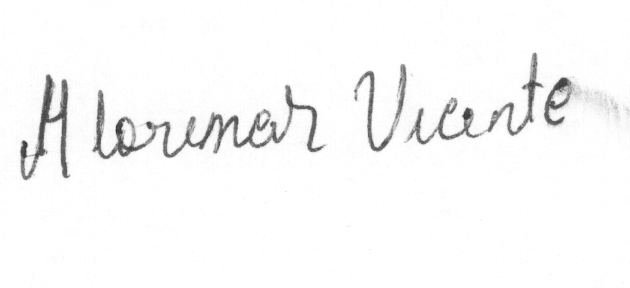 Alorimar Vicente